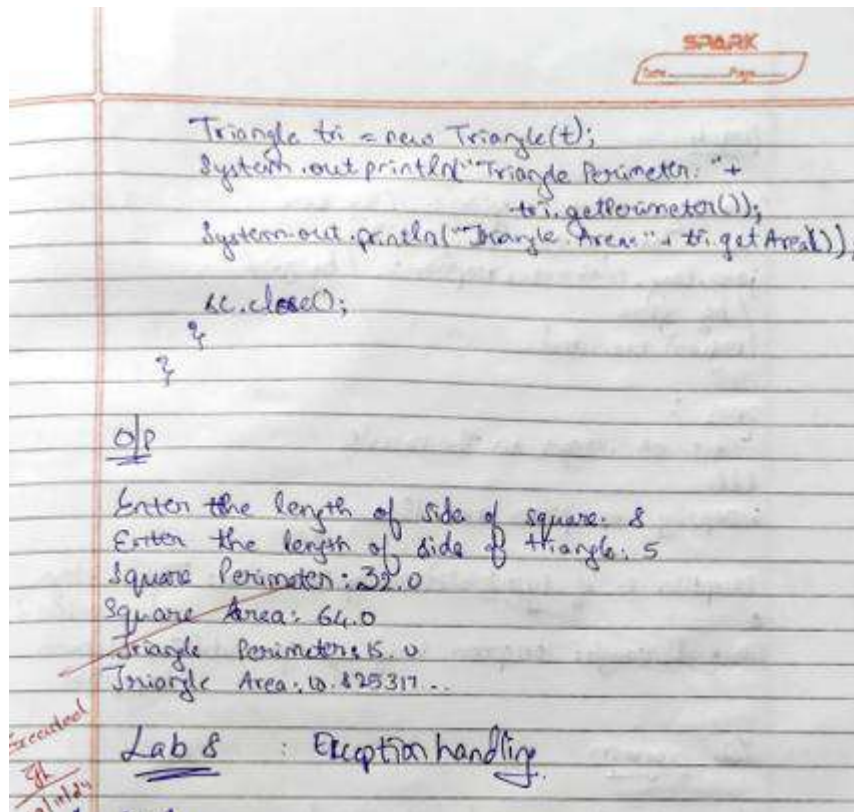 SPARK
Date Page
Triangle tri = new Triangle(t);
System.out.println("Triangle Perimeter: "+
tri.getPerimeter());
System.out.println("Triangle Area: "+ tri.getArea());
sc.close();
}
}
O/P
Enter the length of side of square: 8
Enter the length of side of triangle: 5
Square Perimeter: 32.0
Square Area: 64.0
Triangle Perimeter: 15.0
Triangle Area: 10.825317..
Executed
Lab 8 : Exception handling